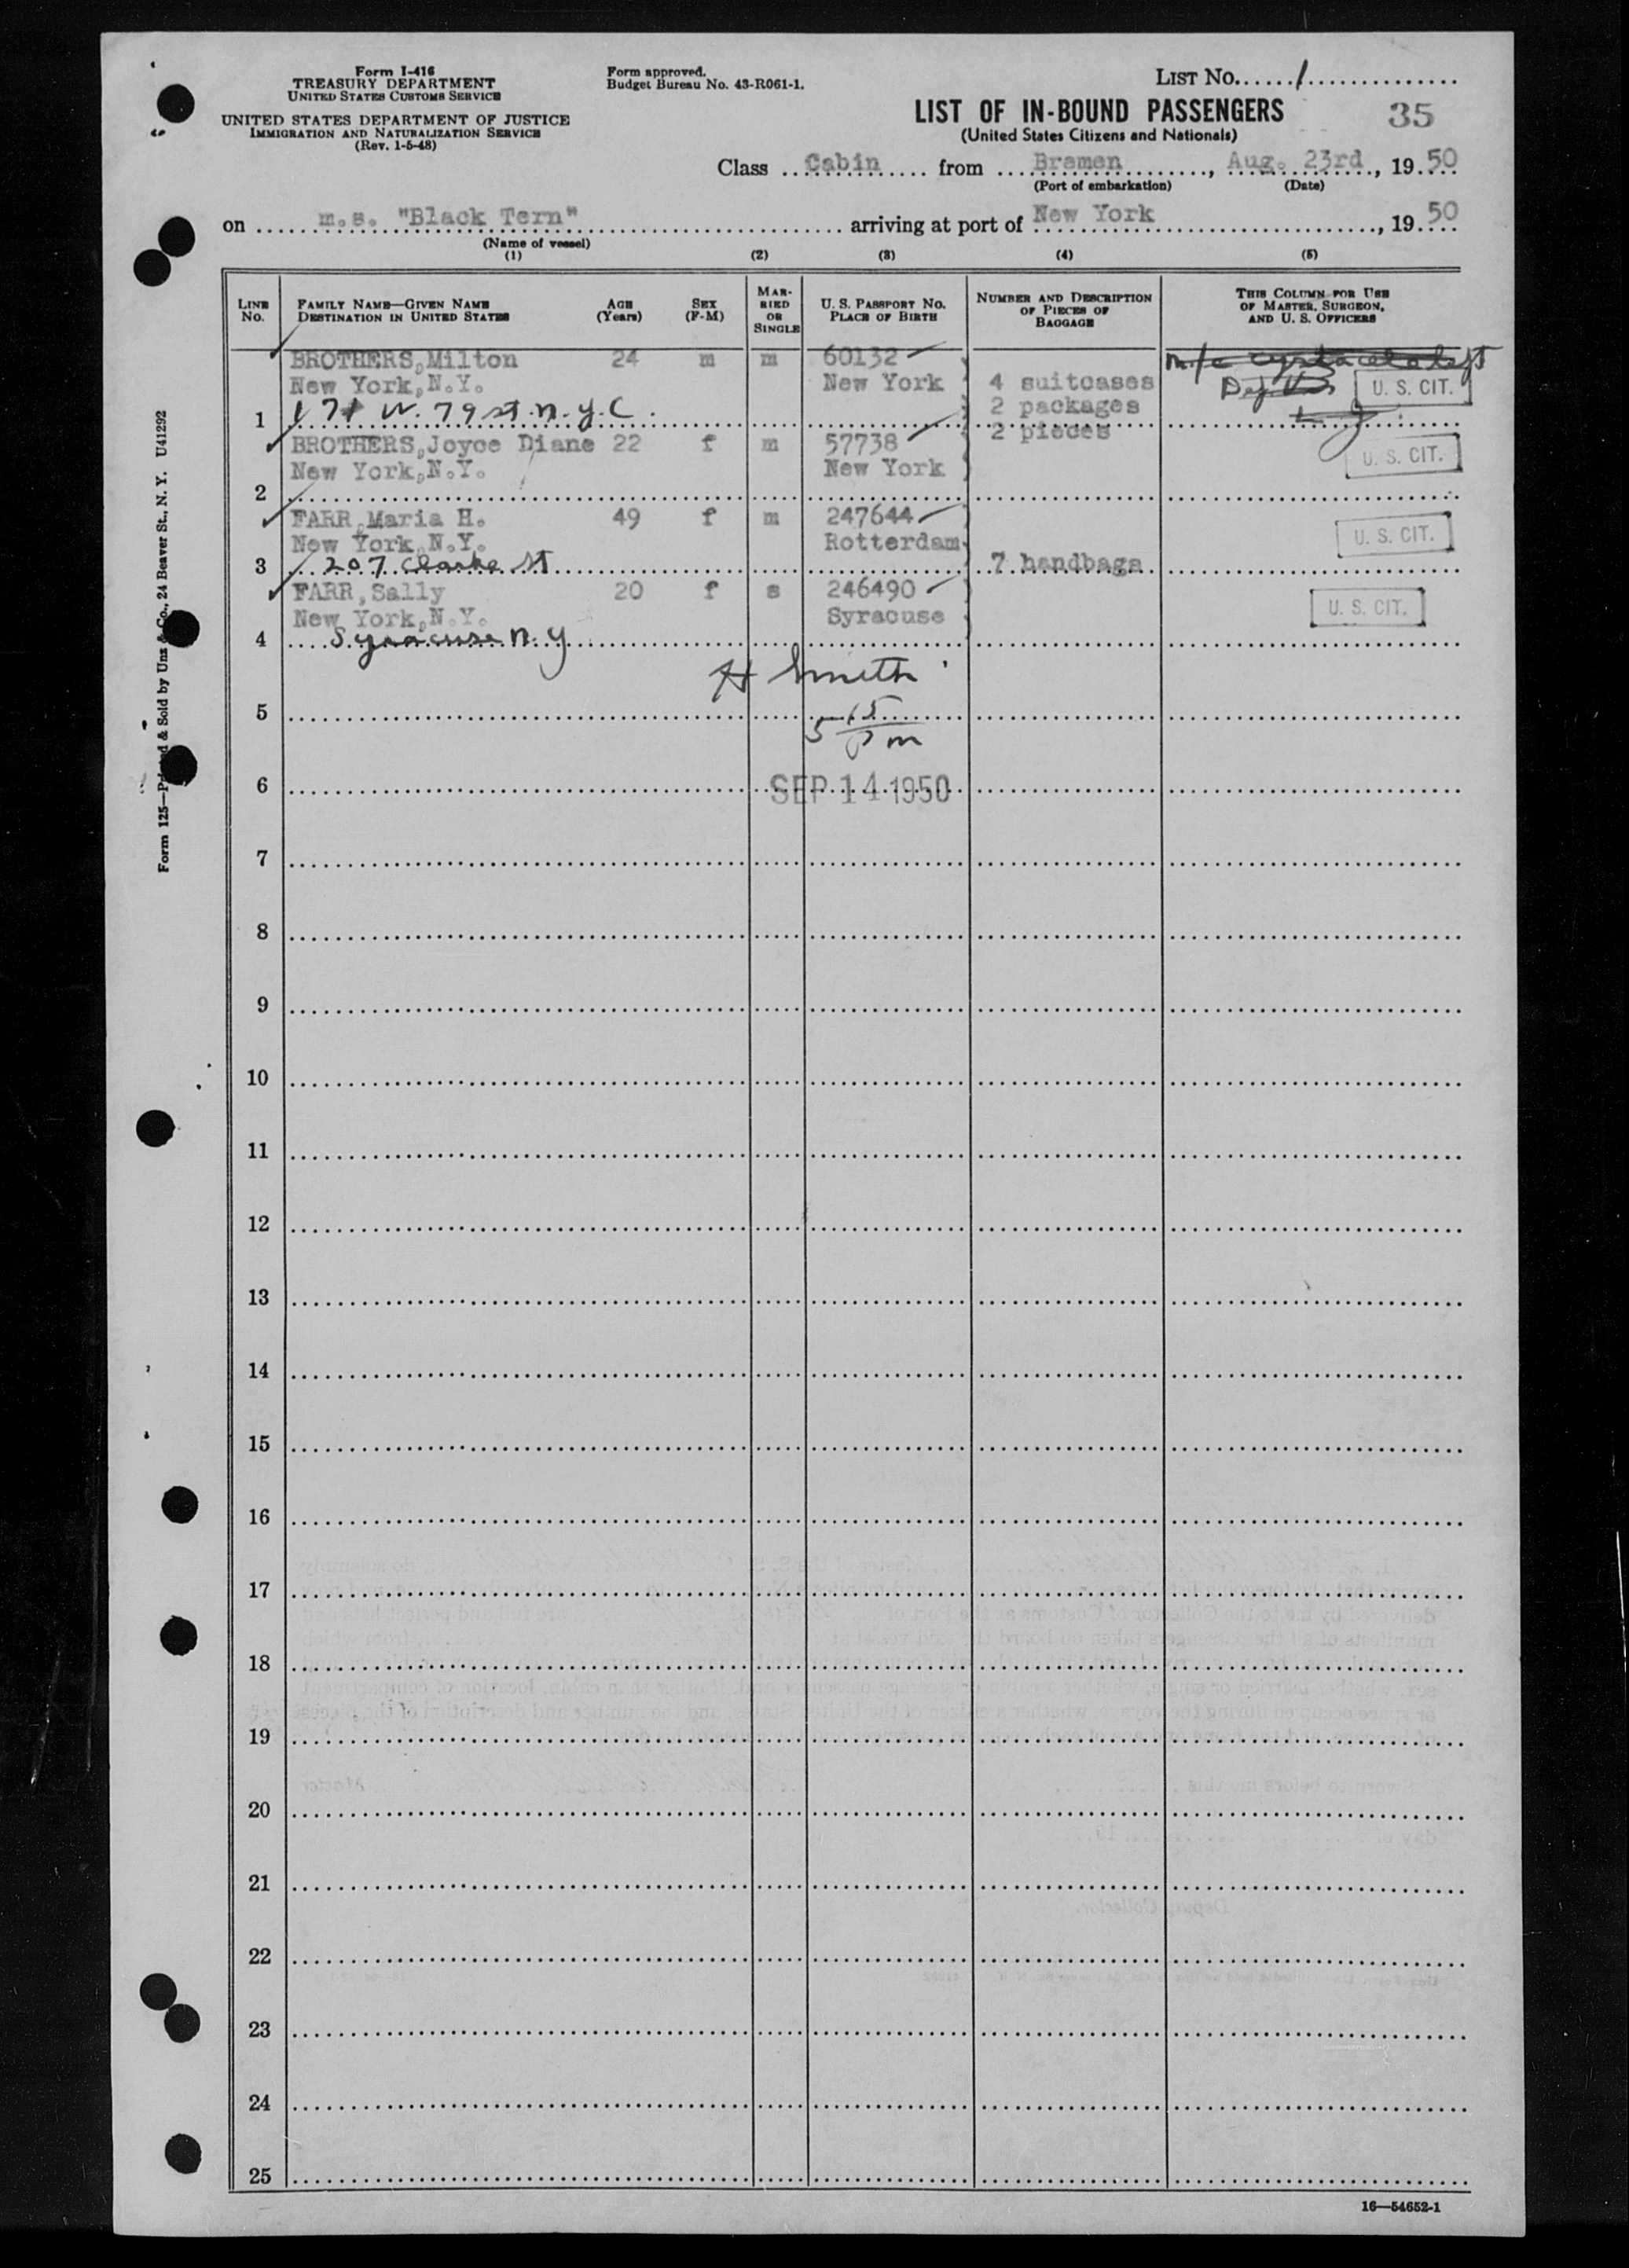 Form I-416
TREASURY DEPARTMENT
UNITED STATES CUSTOMS SERVICE
UNITED STATES DEPARTMENT OF JUSTICE
IMMIGRATION AND NATURALIZATION SERVICE
(Rev. 1-5-48)
Form approved.
Budget Bureau No. 43-R061-1.
LIST NO. 1
LIST OF IN-BOUND PASSENGERS
(United States Citizens and Nationals)
35
Class Cabin from Bremen, Aug. 23rd, 1950
(Port of embarkation) (Date)
on m.s. "Black Tern" arriving at port of New York, 1950
(Name of vessel)
(1) (2) (3) (4) (5)
LINE No. FAMILY NAME—GIVEN NAME DESTINATION IN UNITED STATES AGE (Years) SEX (F-M) MARRIED OR SINGLE U. S. PASSPORT NO. PLACE OF BIRTH NUMBER AND DESCRIPTION OF PIECES OF BAGGAGE THIS COLUMN FOR USE OF MASTER, SURGEON, AND U. S. OFFICERS
BROTHERS, Milton 24 m m 60132
New York, N.Y. New York 4 suitcases U. S. CIT.
1 171 W. 79 st. n.y.C. 2 packages
BROTHERS, Joyce Diane 22 f m 57738 2 pieces
New York, N.Y. New York U. S. CIT.
2
FARR, Maria H. 49 f m 247644
New York, N.Y. Rotterdam U. S. CIT.
3 207 Clarke St 7 handbags
FARR, Sally 20 f s 246490
New York, N.Y. Syracuse U. S. CIT.
4 Syracuse n.y
H Smith
5 5 15 pm
6 SEP 14 1950
7
8
9
10
11
12
13
14
15
16
17
18
19
20
21
22
23
24
25
16—54652-1
Form 125—Printed & Sold by Unz & Co., 24 Beaver St., N. Y. U41292